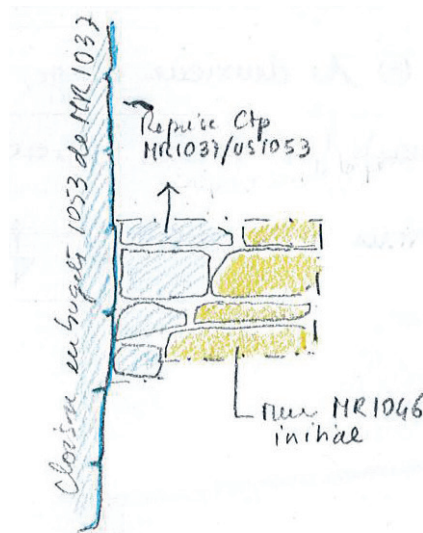 Cloison en bugets 1053 de MR1037
Reprise Ctp
MR1037/US1053
Mur MR1046
initial